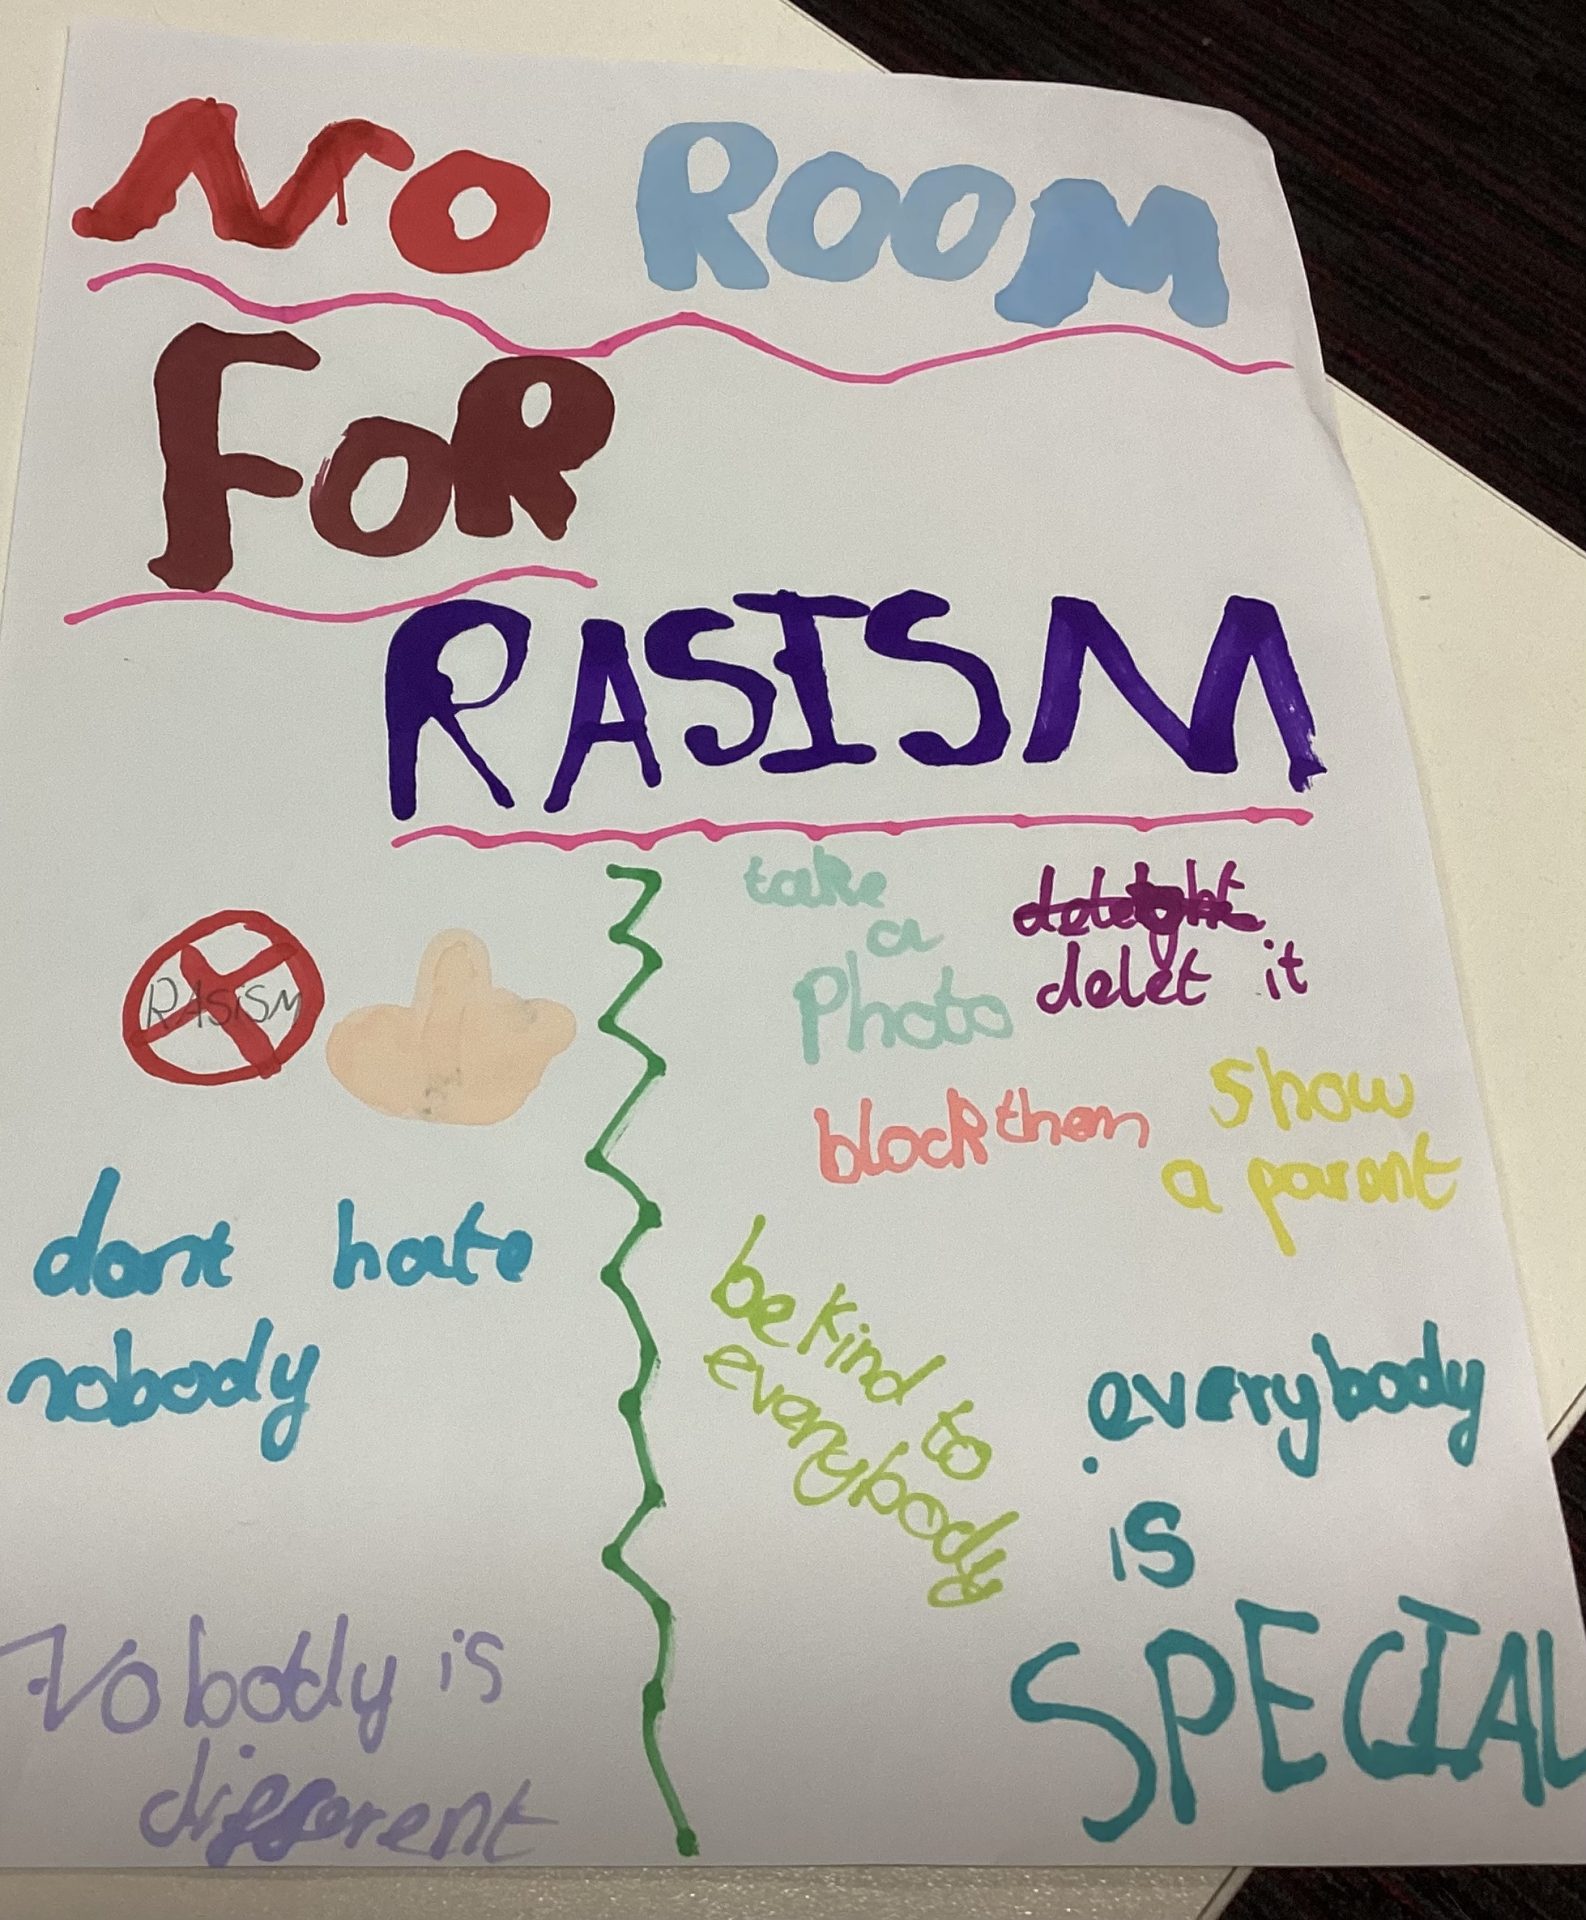 NO ROOM
FOR
RASISM
RASiSM
dont hate
nobody
Nobody is
different
take
a
Photo
delet it
block them
show
a parent
be kind to
everybody
everybody
is
SPECIAL